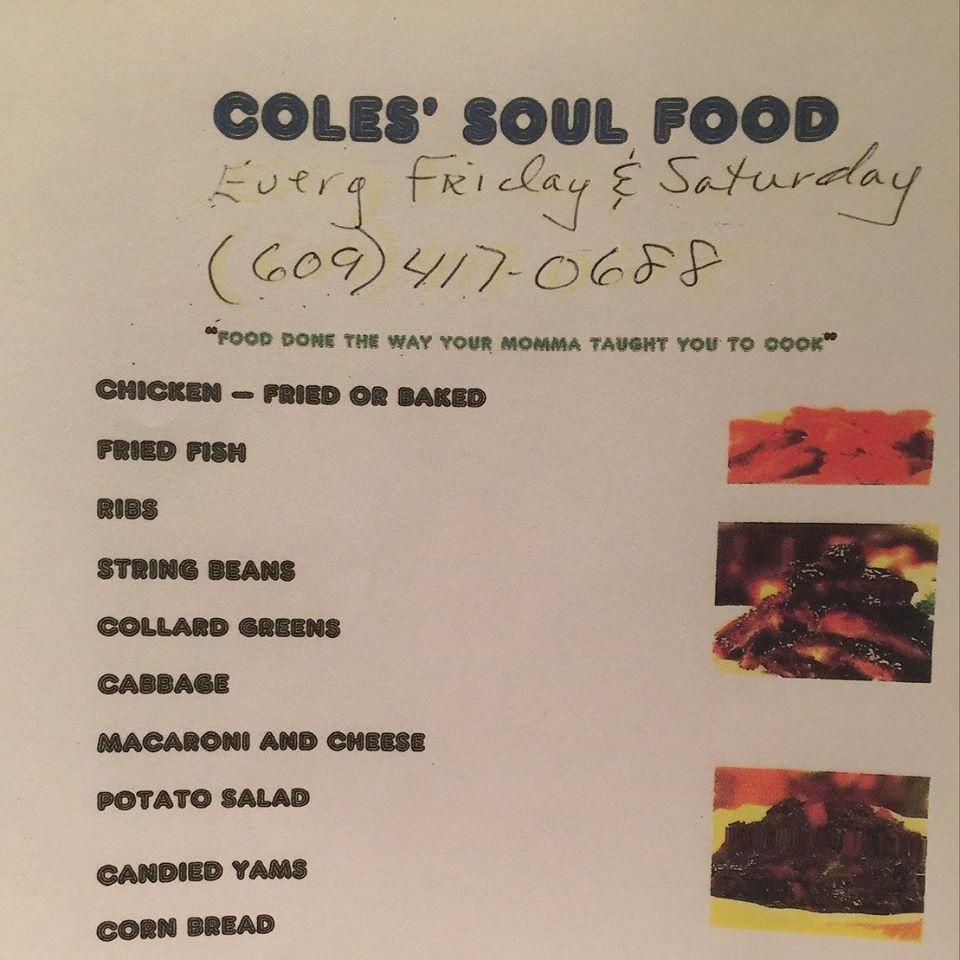 COLES' SOUL FOOD
Every Friday & Saturday
(609) 417-0688
"FOOD DONE THE WAY YOUR MOMMA TAUGHT YOU TO COOK"
CHICKEN – FRIED OR BAKED
FRIED FISH
RIBS
STRING BEANS
COLLARD GREENS
CABBAGE
MACARONI AND CHEESE
POTATO SALAD
CANDIED YAMS
CORN BREAD